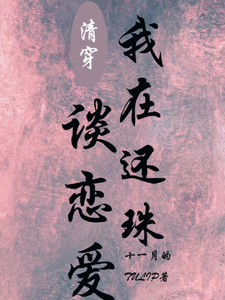 清穿
我在还珠
谈恋爱
十一月的
TULIP著